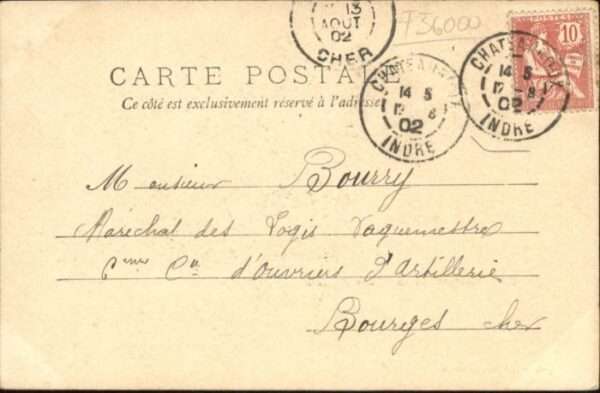 13
AOUT
02
CHER
F36000
POSTES
10
CHATEAUROUX
14 5
12 - 8
02
INDRE
CHATEAUROUX
14 5
12 - 8
02
INDRE
CARTE POSTALE
Ce côté est exclusivement réservé à l'adresse
Monsieur Bourry
Maréchal des Logis Vaguemestre
6ème Cie d'ouvriers d'Artillerie
Bourges Cher